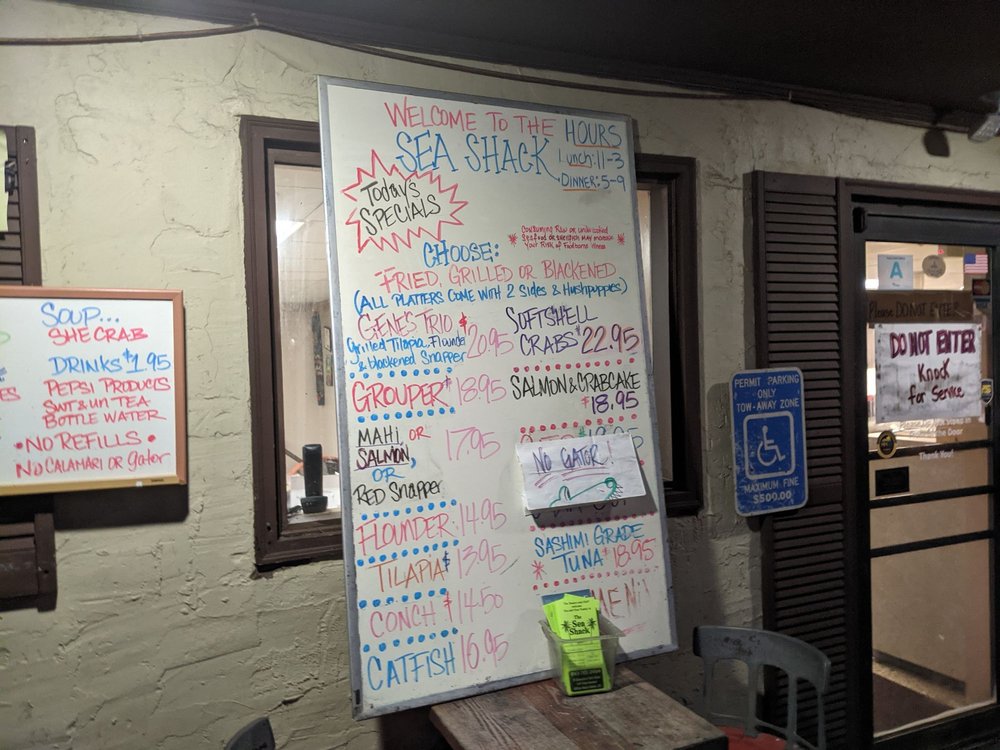 WELCOME TO THE
SEA SHACK
HOURS
Lunch: 11-3
DINNER: 5-9
TODAY'S
SPECIALS
Consuming Raw or undercooked
Seafood or shellfish may increase
Your Risk of Foodborne illness
CHOOSE:
FRIED, GRILLED OR BLACKENED
(ALL PLATTERS COME WITH 2 SIDES & HUSHPUPPIES)
GENE'S TRIO $20.95
Grilled Tilapia, Flounder
& blackened Snapper
GROUPER $18.95
MAHI, OR
SALMON,
OR
RED SNAPPER
17.95
FLOUNDER 14.95
TILAPIA $13.95
CONCH $14.50
CATFISH 16.95
SOFTSHELL
CRABS $22.95
SALMON & CRABCAKE
$18.95
NO GATOR!
SASHIMI GRADE
TUNA $18.95
MENU
The
Sea
Shack
SOUP...
SHE CRAB
DRINKS $1.95
PEPSI PRODUCTS
SWT & UN TEA
BOTTLE WATER
• NO REFILLS •
NO CALAMARI OR gator
PERMIT PARKING
ONLY
TOW-AWAY ZONE
MAXIMUM FINE
$500.00
A
Please DO NOT ENTER
DO NOT ENTER
Knock
for Service
Thank You!